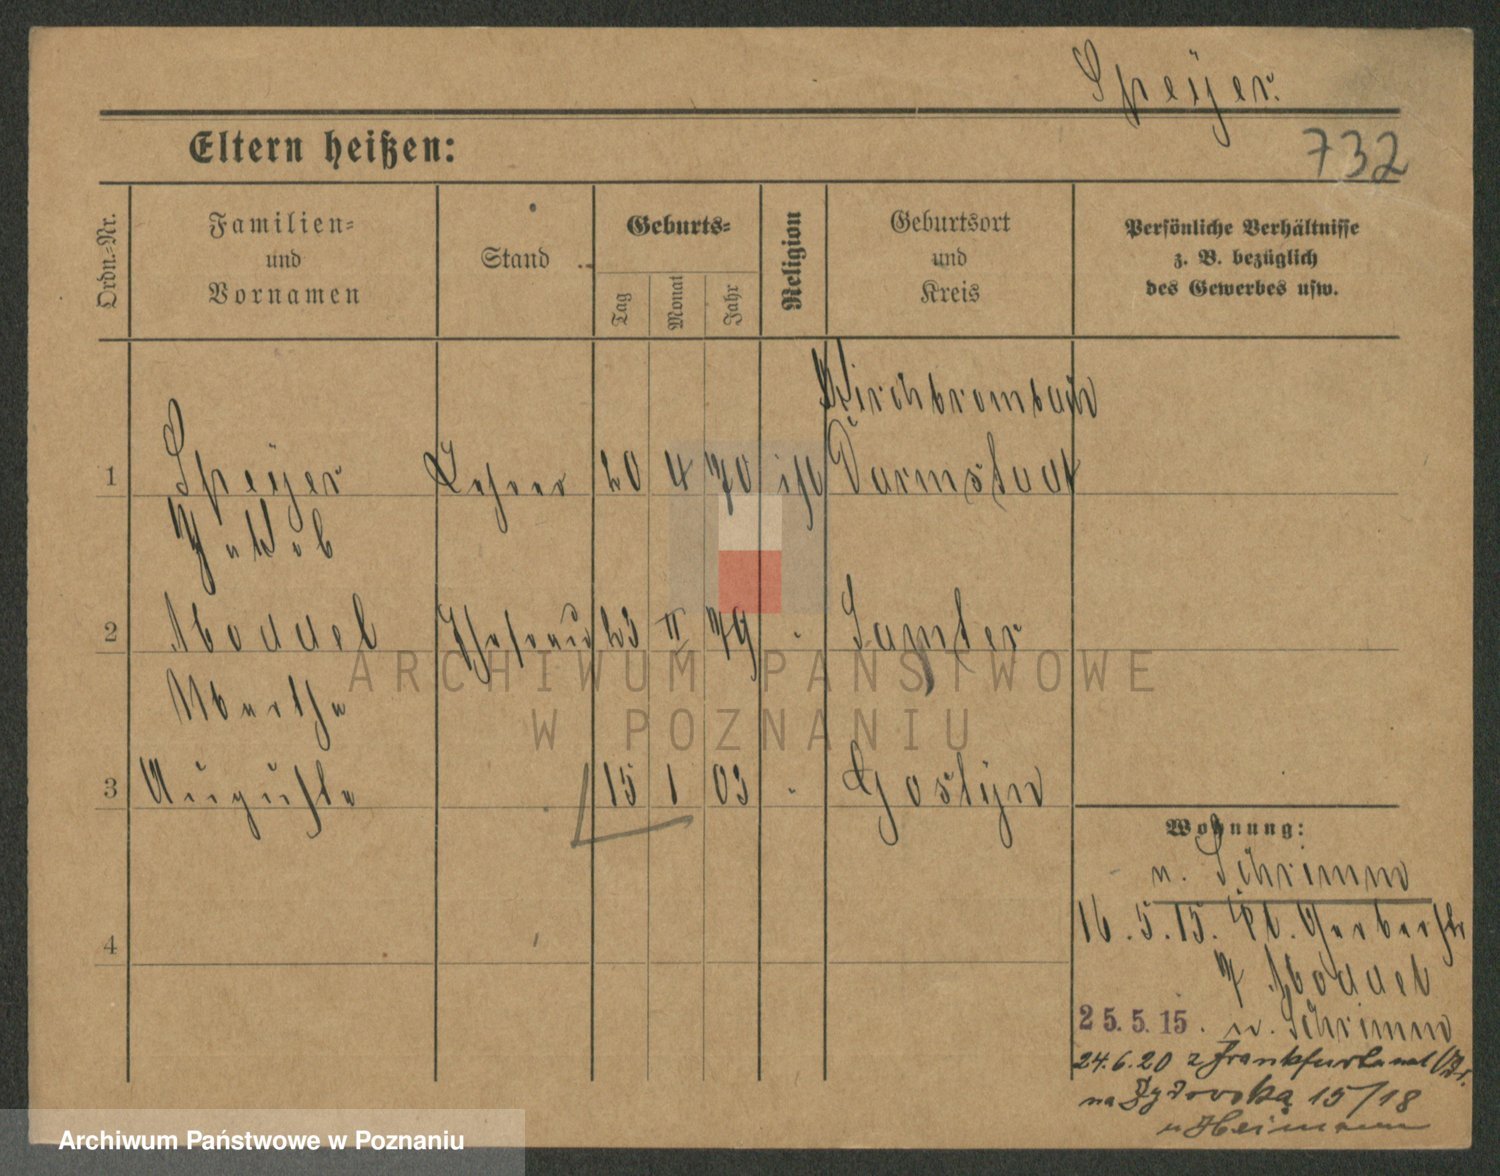 Speijer.
732
Eltern heißen:
Ordn.-Nr.
Familien-
und
Vornamen
Stand
Geburts-
Tag
Monat
Jahr
Religion
Geburtsort
und
Kreis
Persönliche Verhältnisse
z. B. bezüglich
des Gewerbes usw.
Kirchbrombach
1 Speijer Lehrer 20 4 70 isr Darmstadt
Jakob
2 Moddel Ehefrau 23 II 79 " Samter
Martha
3 Auguste 15 1 03 " Gostyn
Wohnung:
n. Schrimm
16.5.15. Gerberstr
7 Moddel
25.5.15. n. Schrimm
4
24.6.20 z Frankfurtu nad
na Żydowską 15/18
u Heimann
ARCHIWUM PAŃSTWOWE
W POZNANIU
Archiwum Państwowe w Poznaniu